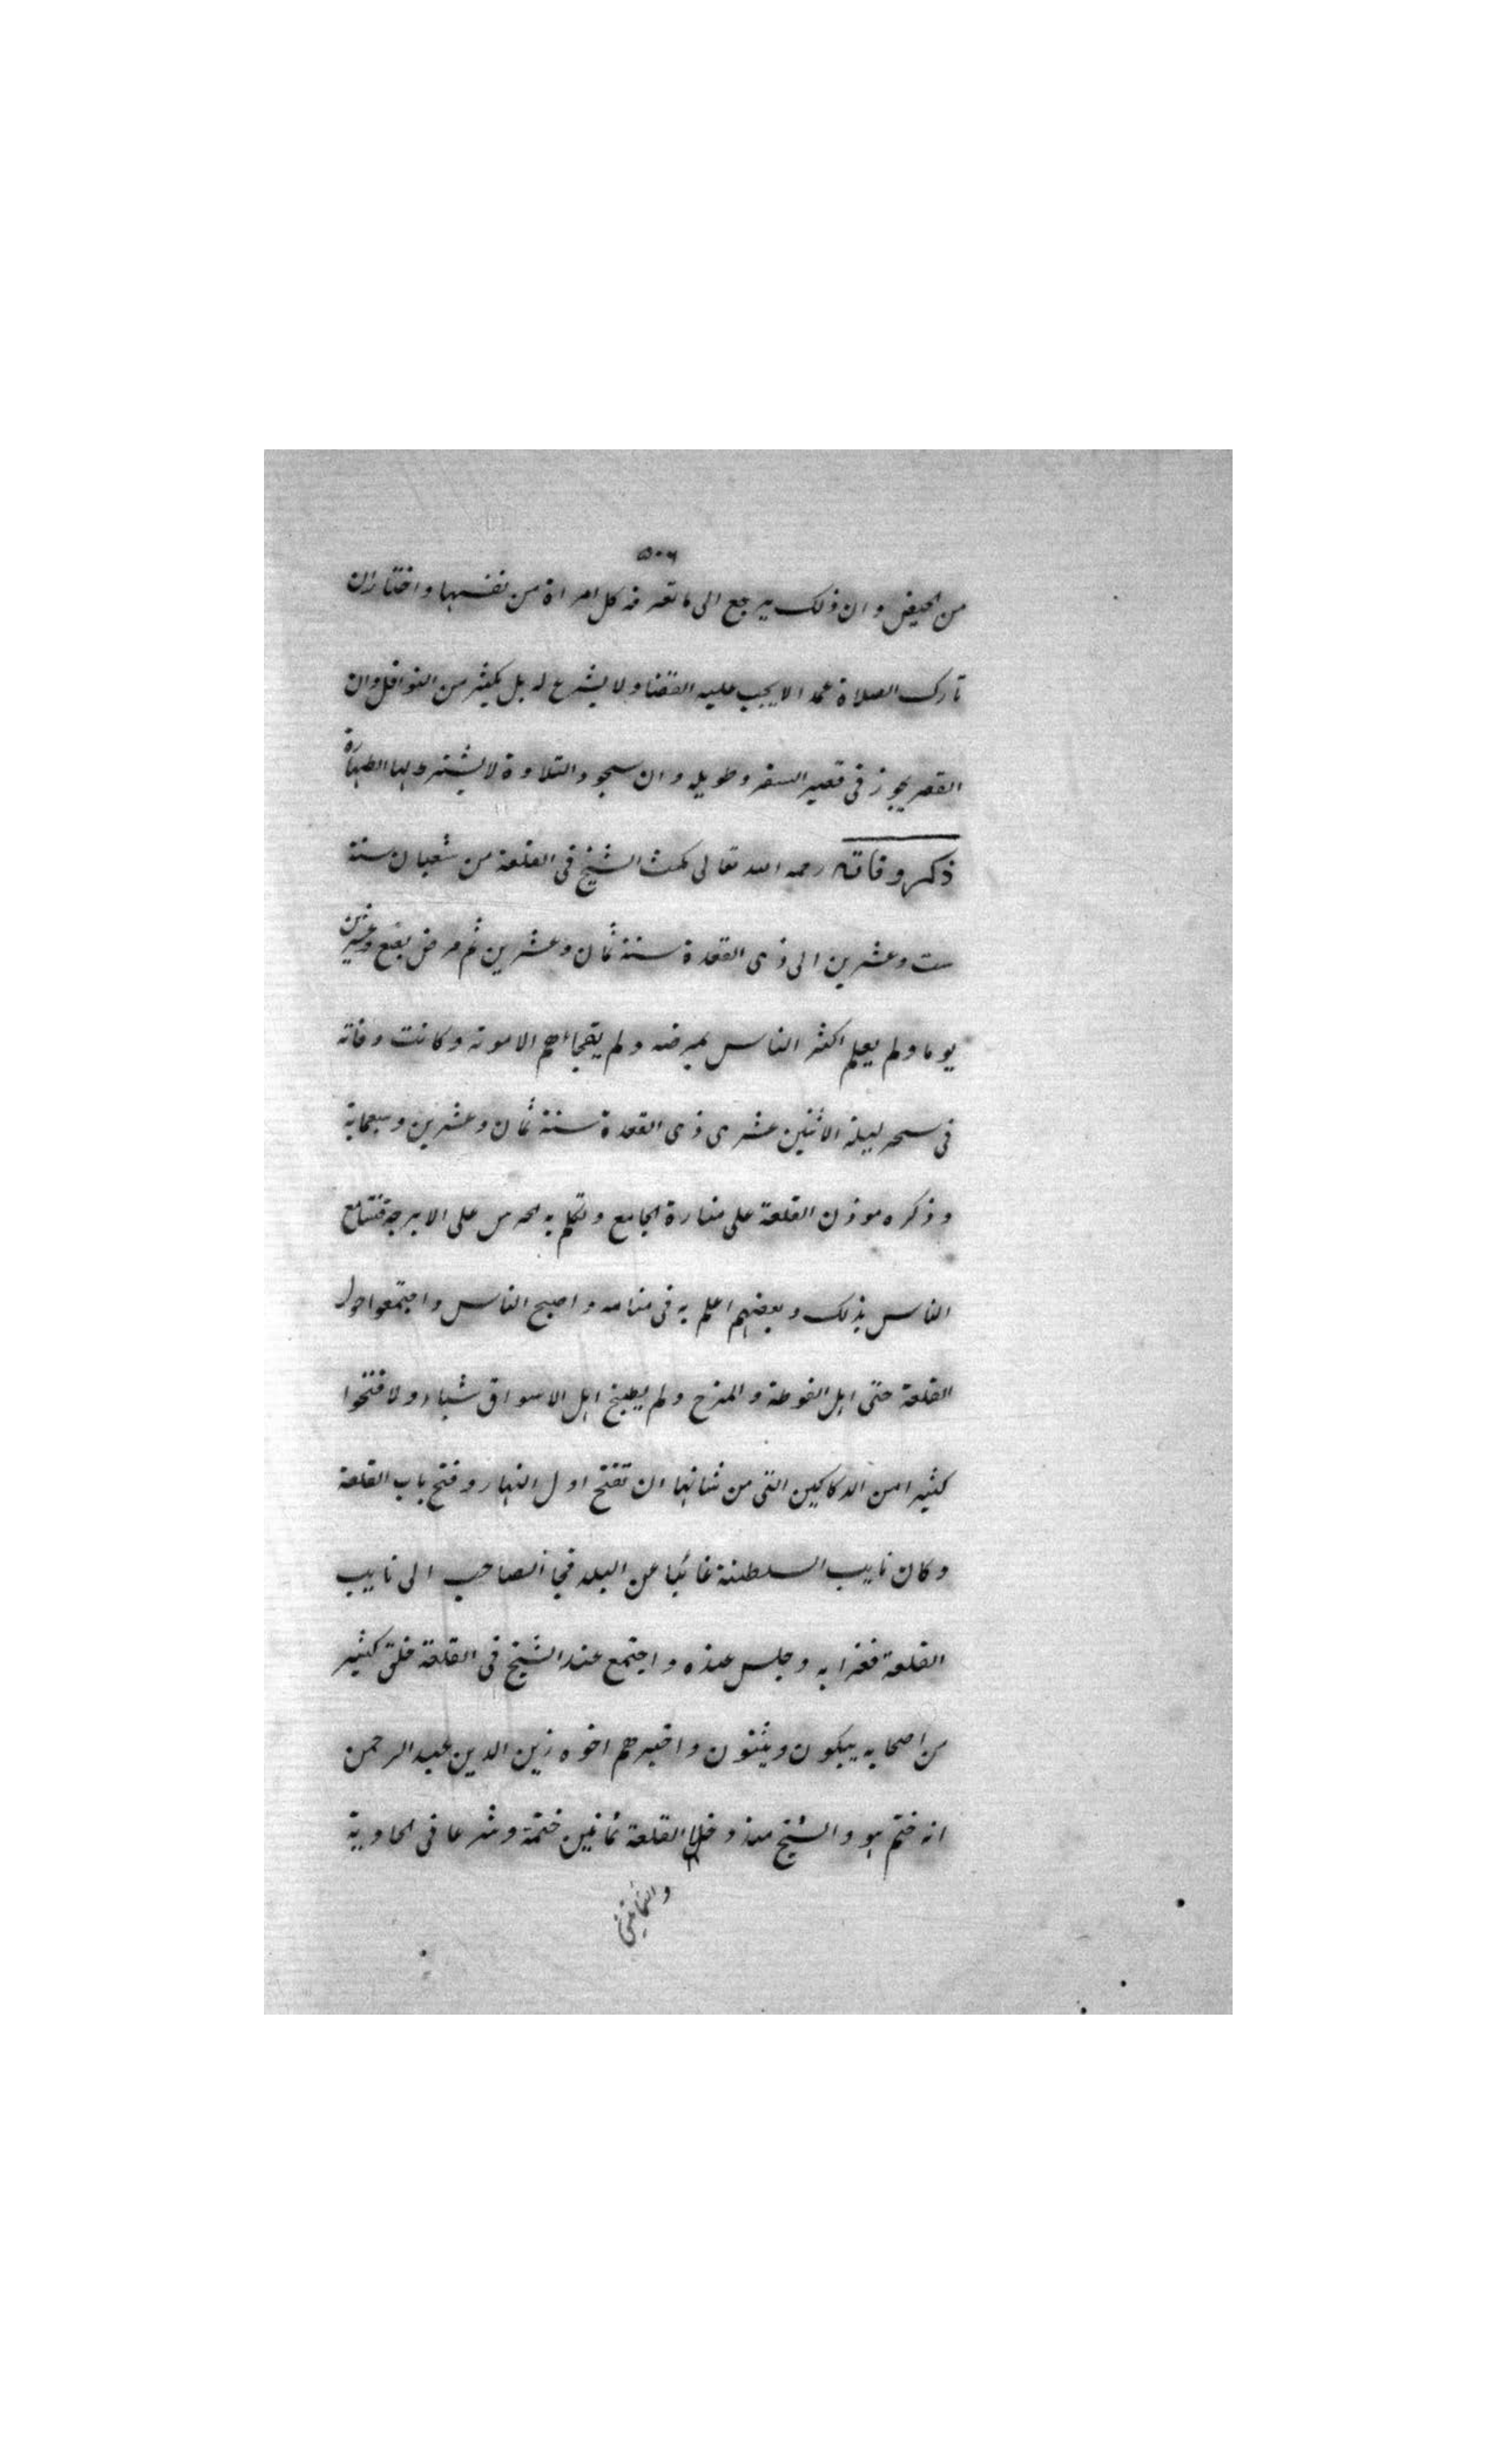 ٥٠٦
من الحيض وان ذلك يرجع الى ما تعرفه كل امراة من نفسها واختار ان
تارك الصلاة عمدا لا يجب عليه القضا ولا يشرع له بل يكثر من النوافل وان
القصر يجوز فى قصير السفر وطويله وان سجود التلاوة لا يشترط لها الطهارة
ذكر وفاته رحمه الله تعالى مكث الشيخ فى القلعة من شعبان سنة
ست وعشرين الى ذى القعدة سنة ثمان وعشرين ثم مرض بضع وعشرين
يوما ولم يعلم اكثر الناس بمرضه ولم يفجاهم الا موته وكانت وفاته
فى سحر ليلة الاثنين عشرى ذى القعدة سنة ثمان وعشرين وسبعماية
وذكره موذن القلعة على منارة الجامع وتكلم به الحرس على الابرجة فتسامع
الناس بذلك وبعضهم اعلم به فى منامه واصبح الناس واجتمعوا حول
القلعة حتى اهل الغوطة والمرج ولم يطبخ اهل الاسواق شياء ولا فتحوا
كثيرا من الدكاكين التى من شانها ان تفتح اول النهار وفتح باب القلعة
وكان نايب السلطنة غائبا عن البلد فجا الصاحب الى نايب
القلعة فعزا به وجلس عنده واجتمع عند الشيخ فى القلعة خلق كثير
من اصحابه يبكون ويثنون واخبرهم اخوه زين الدين عبد الرحمن
انه ختم هو والشيخ منذ دخلا القلعة ثمانين ختمة وشرعا فى الحادية
والثمانين